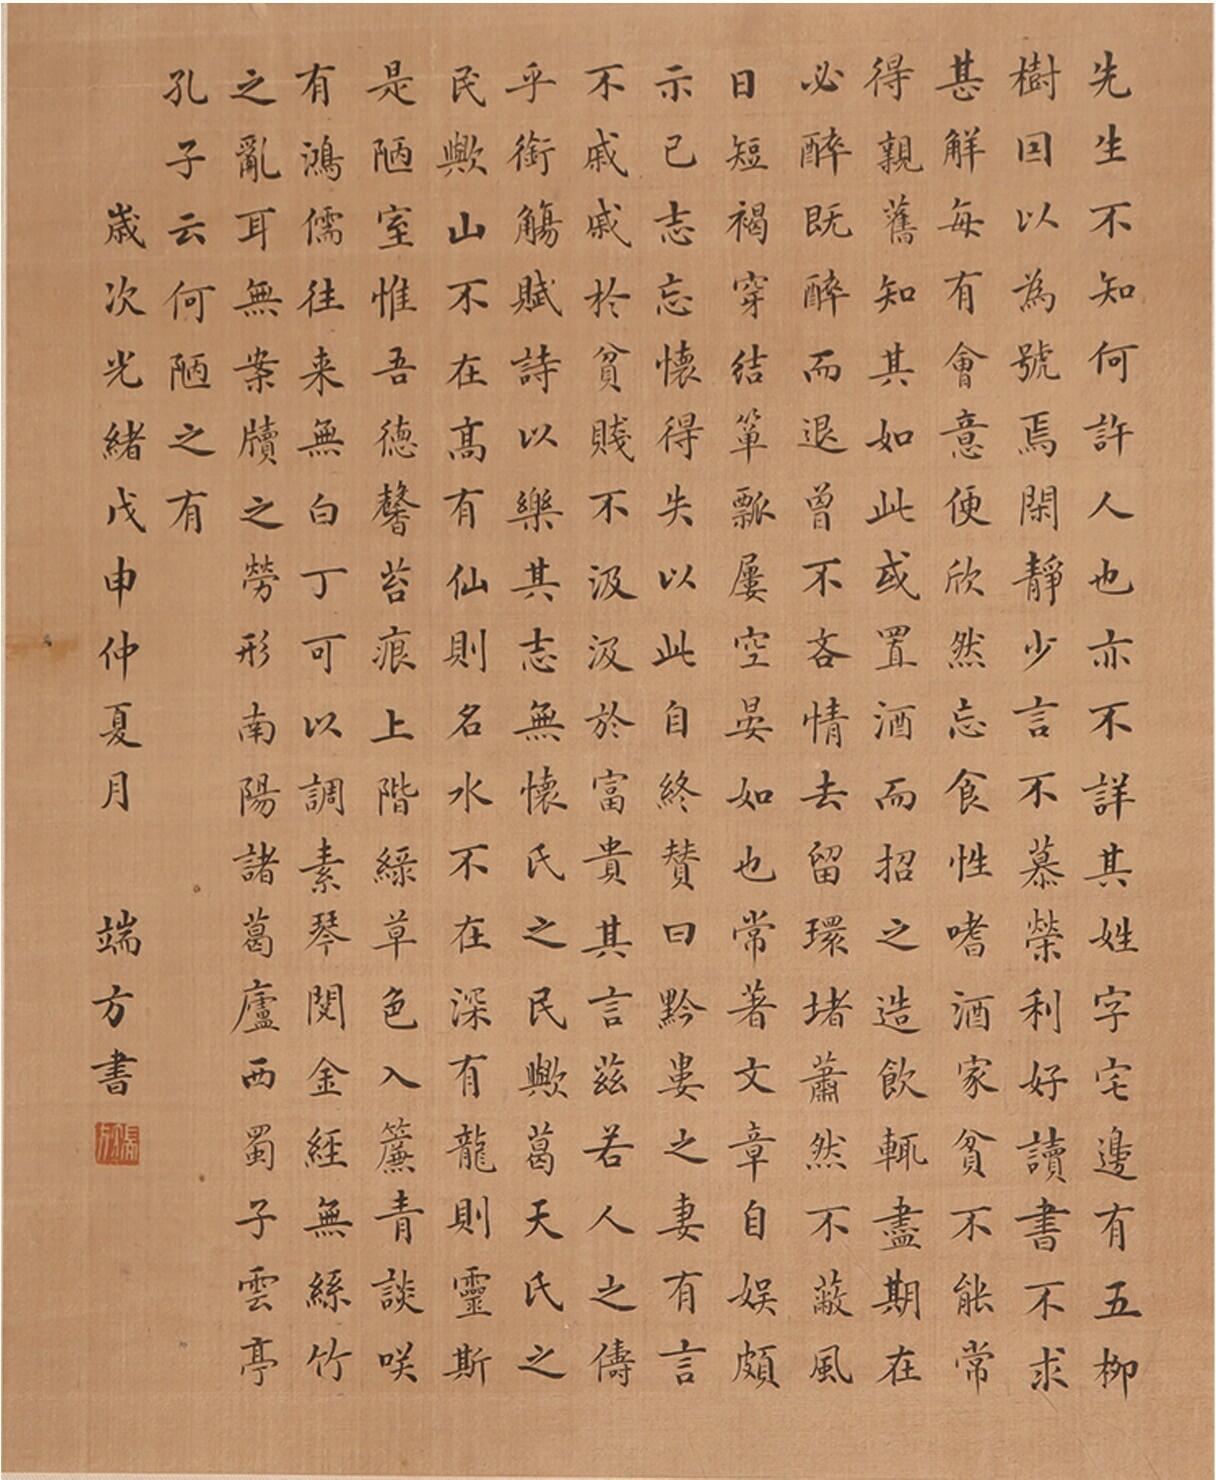 先生不知何許人也亦不詳其姓字宅邊有五柳
樹因以為號焉閑靜少言不慕榮利好讀書不求
甚解每有會意便欣然忘食性嗜酒家貧不能常
得親舊知其如此或置酒而招之造飲輒盡期在
必醉既醉而退曾不吝情去留環堵蕭然不蔽風
日短褐穿結簞瓢屢空晏如也常著文章自娛頗
示己志忘懷得失以此自終贊曰黔婁之妻有言
不戚戚於貧賤不汲汲於富貴其言茲若人之儔
乎銜觴賦詩以樂其志無懷氏之民歟葛天氏之
民歟山不在高有仙則名水不在深有龍則靈斯
是陋室惟吾德馨苔痕上階綠草色入簾青談咲
有鴻儒往来無白丁可以調素琴閱金經無絲竹
之亂耳無案牘之勞形南陽諸葛廬西蜀子雲亭
孔子云何陋之有
歲次光緒戊申仲夏月 端方書